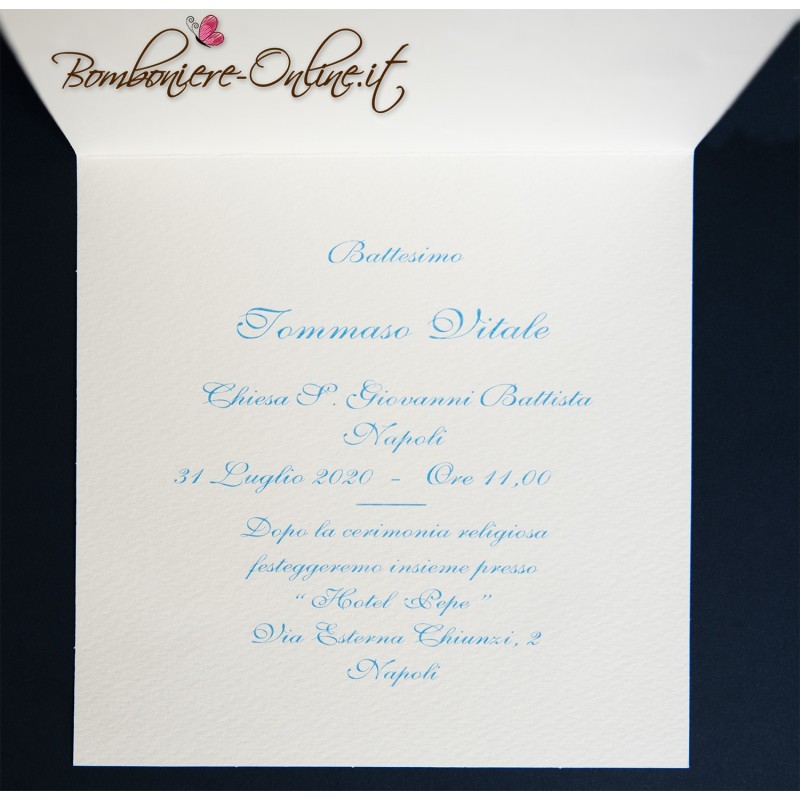 Bomboniere-Online.it
Battesimo
Tommaso Vitale
Chiesa S. Giovanni Battista
Napoli
31 Luglio 2020 - Ore 11,00
Dopo la cerimonia religiosa
festeggeremo insieme presso
“ Hotel Pepe ”
Via Esterna Chiunzi, 2
Napoli